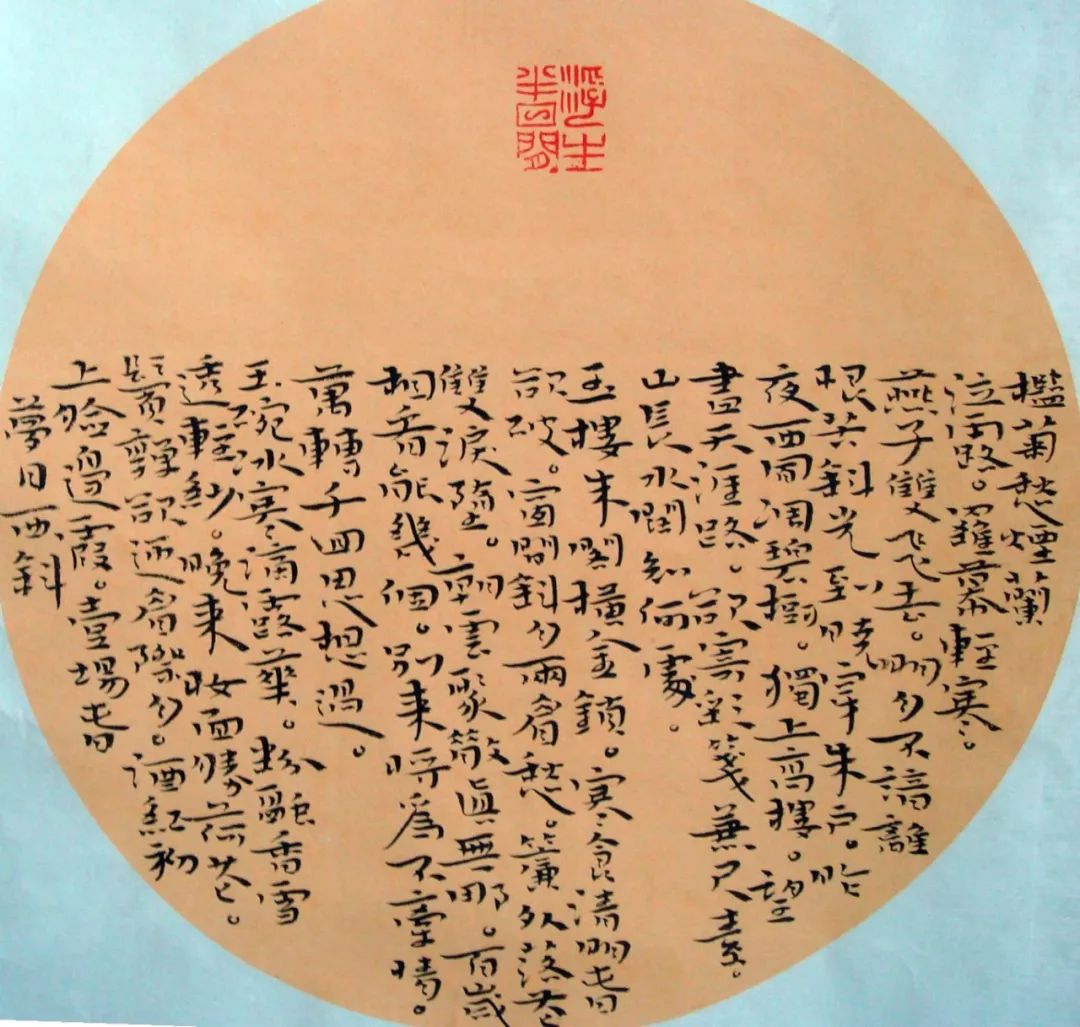 浮生
半日閒
檻菊愁煙蘭
泣露。羅幕輕寒。
燕子雙飛去。明月不諳離
恨苦斜光到曉穿朱户。昨
夜西風凋碧樹。獨上高樓。望
盡天涯路。欲寄彩箋兼尺素。
山長水闊知何處。
玉樓朱閣橫金鎖。寒食清明春
欲破。窗間斜月兩眉愁。簾外落花
雙淚墮。朝雲聚散眞無那。百歲
相看能幾個。別來將爲不牽情。
萬轉千回思想過。
玉碗冰寒滴露華。粉融香雪
透輕紗。晚來妝面勝荷花。
鬢嚲欲迎眉際月。酒紅初
上臉邊霞。壹場春
夢日西斜